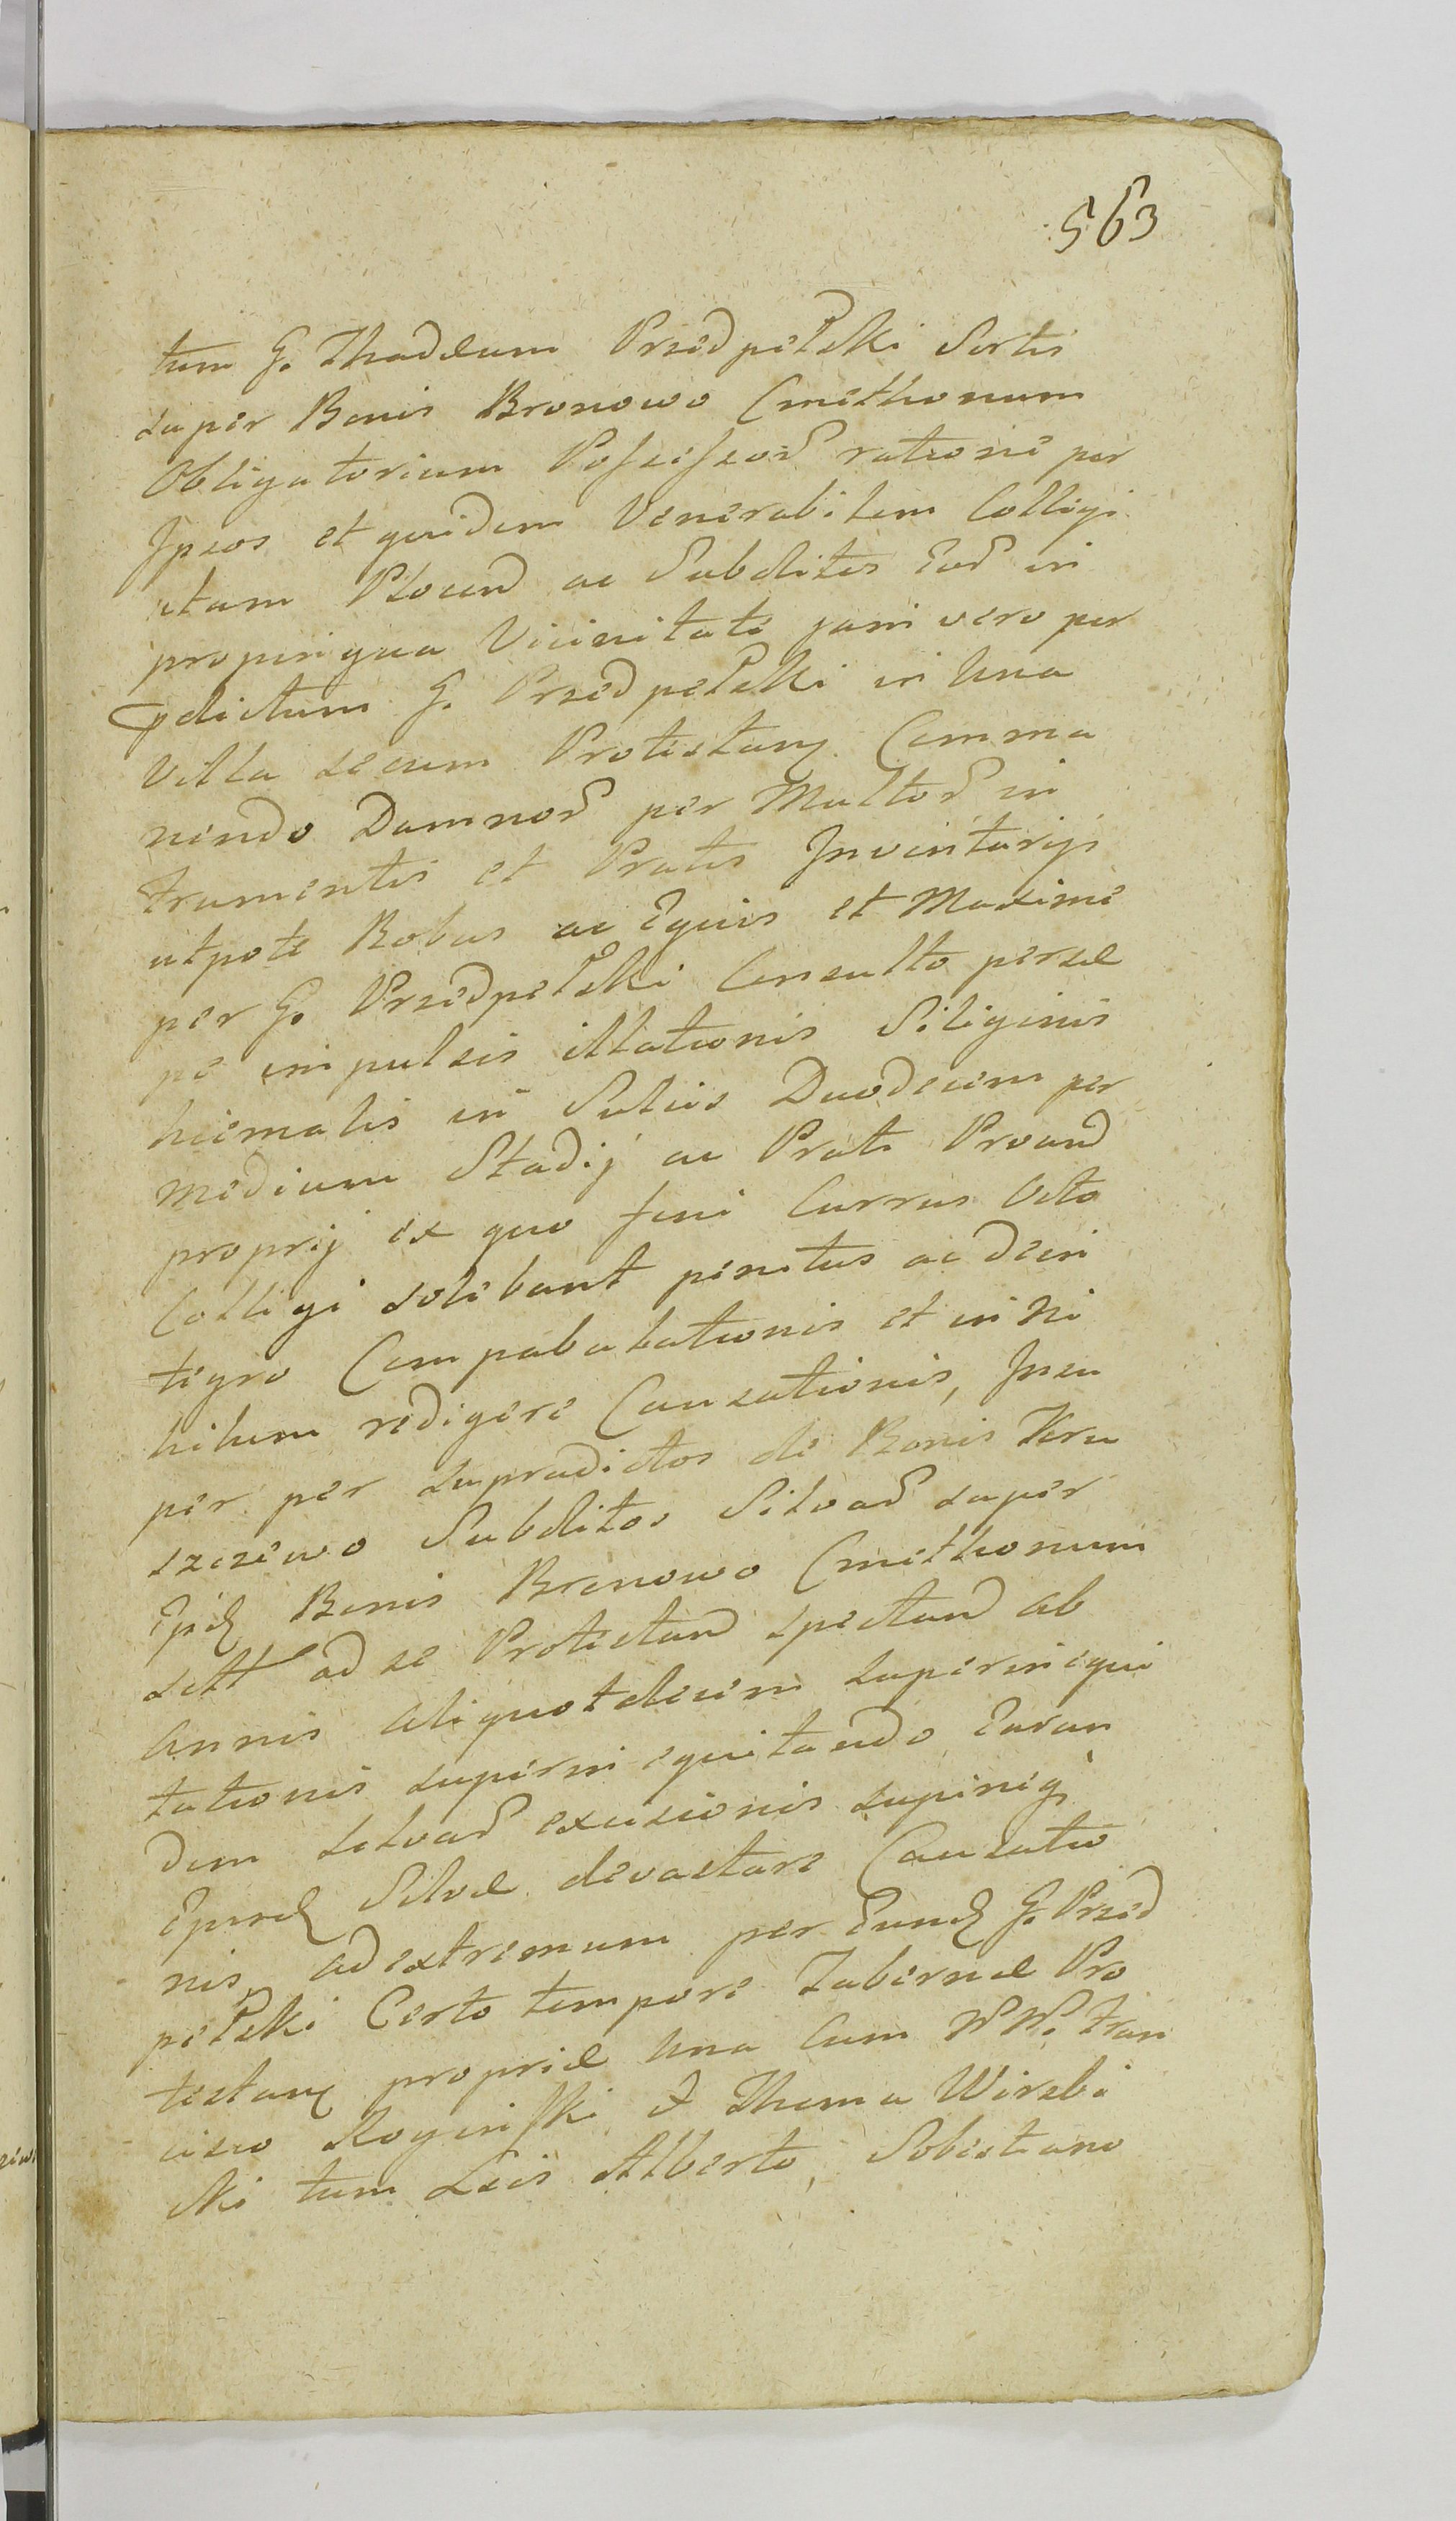 563
tum G. Thadeum Przedpelski Sortis
super Bonis Bronowo Cmethonum
Obligatorium Possessor ratione per
Ipsos et quidem Venerabilem Collegi
atam Plocen ac Subditos Eor in
propinqua Vicinitate jam vero per
pdictum G. Przedpelski in Una
Villa secum Protestan Comma
nendo Damnor per Multor in
frumentis et Pratis Inventarijs
utpote Bobus ac Equis et Maxime
per G. Przedpelski Consulto persae
pe impulsis illationis Siliginis
hiemalis in Sulcis Duodecim per
medium Stadij ac Prati Proand
proprij ex quo feni Currus Octo
Colligi solebant penitus ac dein
tegro Compabulationis et in Ni
hilum redigere Causationis, Insu
per per supradictos de Bonis Kru
szczewo Subditos Silvar super
Ejsd Bonis Bronowo Cmethonum
sitt ad se Protestand spectand ab
Annis Aliquotdecim superinequi
tationis superin equitando Earun
dem Silvar excisionis supineq
Epusd Silvae devastare Causatio
nis, ad extremum per Eund G. Przed
pelski Certo tempore Tabernae Pro
testan propriae Una Cum WW. Fran
cisco Rogiński & Thoma Wirzbi
cki tum Lcis Alberto, Sebestiano